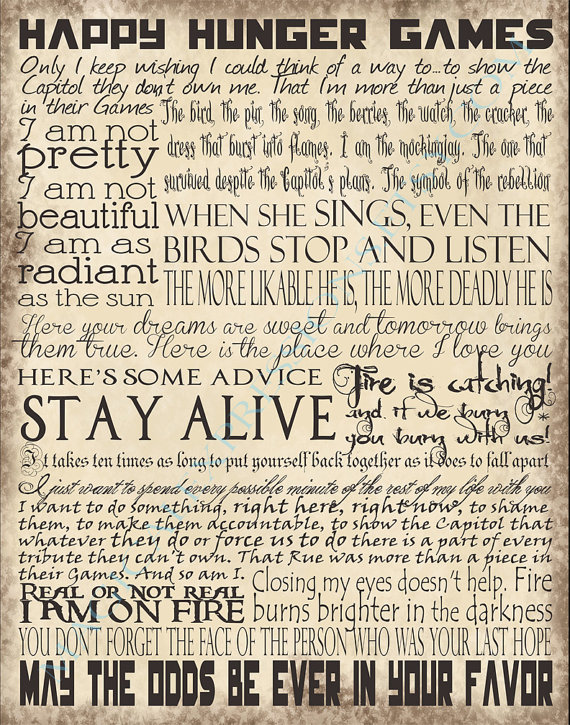 HAPPY HUNGER GAMES
Only I keep wishing I could think of a way to...to show the
Capitol they don't own me. That I'm more than just a piece
in their Games
I am not
pretty
I am not
beautiful
I am as
radiant
as the sun
The bird, the pin, the song, the berries, the watch, the cracker, the
dress that burst into flames. I am the mockingjay. The one that
survived despite the Capitol's plans. The symbol of the rebellion
WHEN SHE SINGS, EVEN THE
BIRDS STOP AND LISTEN
THE MORE LIKABLE HE IS, THE MORE DEADLY HE IS
Here your dreams are sweet and tomorrow brings
them true. Here is the place where I love you
HERE'S SOME ADVICE
STAY ALIVE
Fire is catching!
and if we burn
you burn with us!
It takes ten times as long to put yourself back together as it does to fall apart
I just want to spend every possible minute of the rest of my life with you
I want to do something, right here, right now, to shame
them, to make them accountable, to show the Capitol that
whatever they do or force us to do there is a part of every
tribute they can't own. That Rue was more than a piece in
their Games. And so am I.
REAL OR NOT REAL
I AM ON FIRE
Closing my eyes doesn't help. Fire
burns brighter in the darkness
YOU DON'T FORGET THE FACE OF THE PERSON WHO WAS YOUR LAST HOPE
MAY THE ODDS BE EVER IN YOUR FAVOR